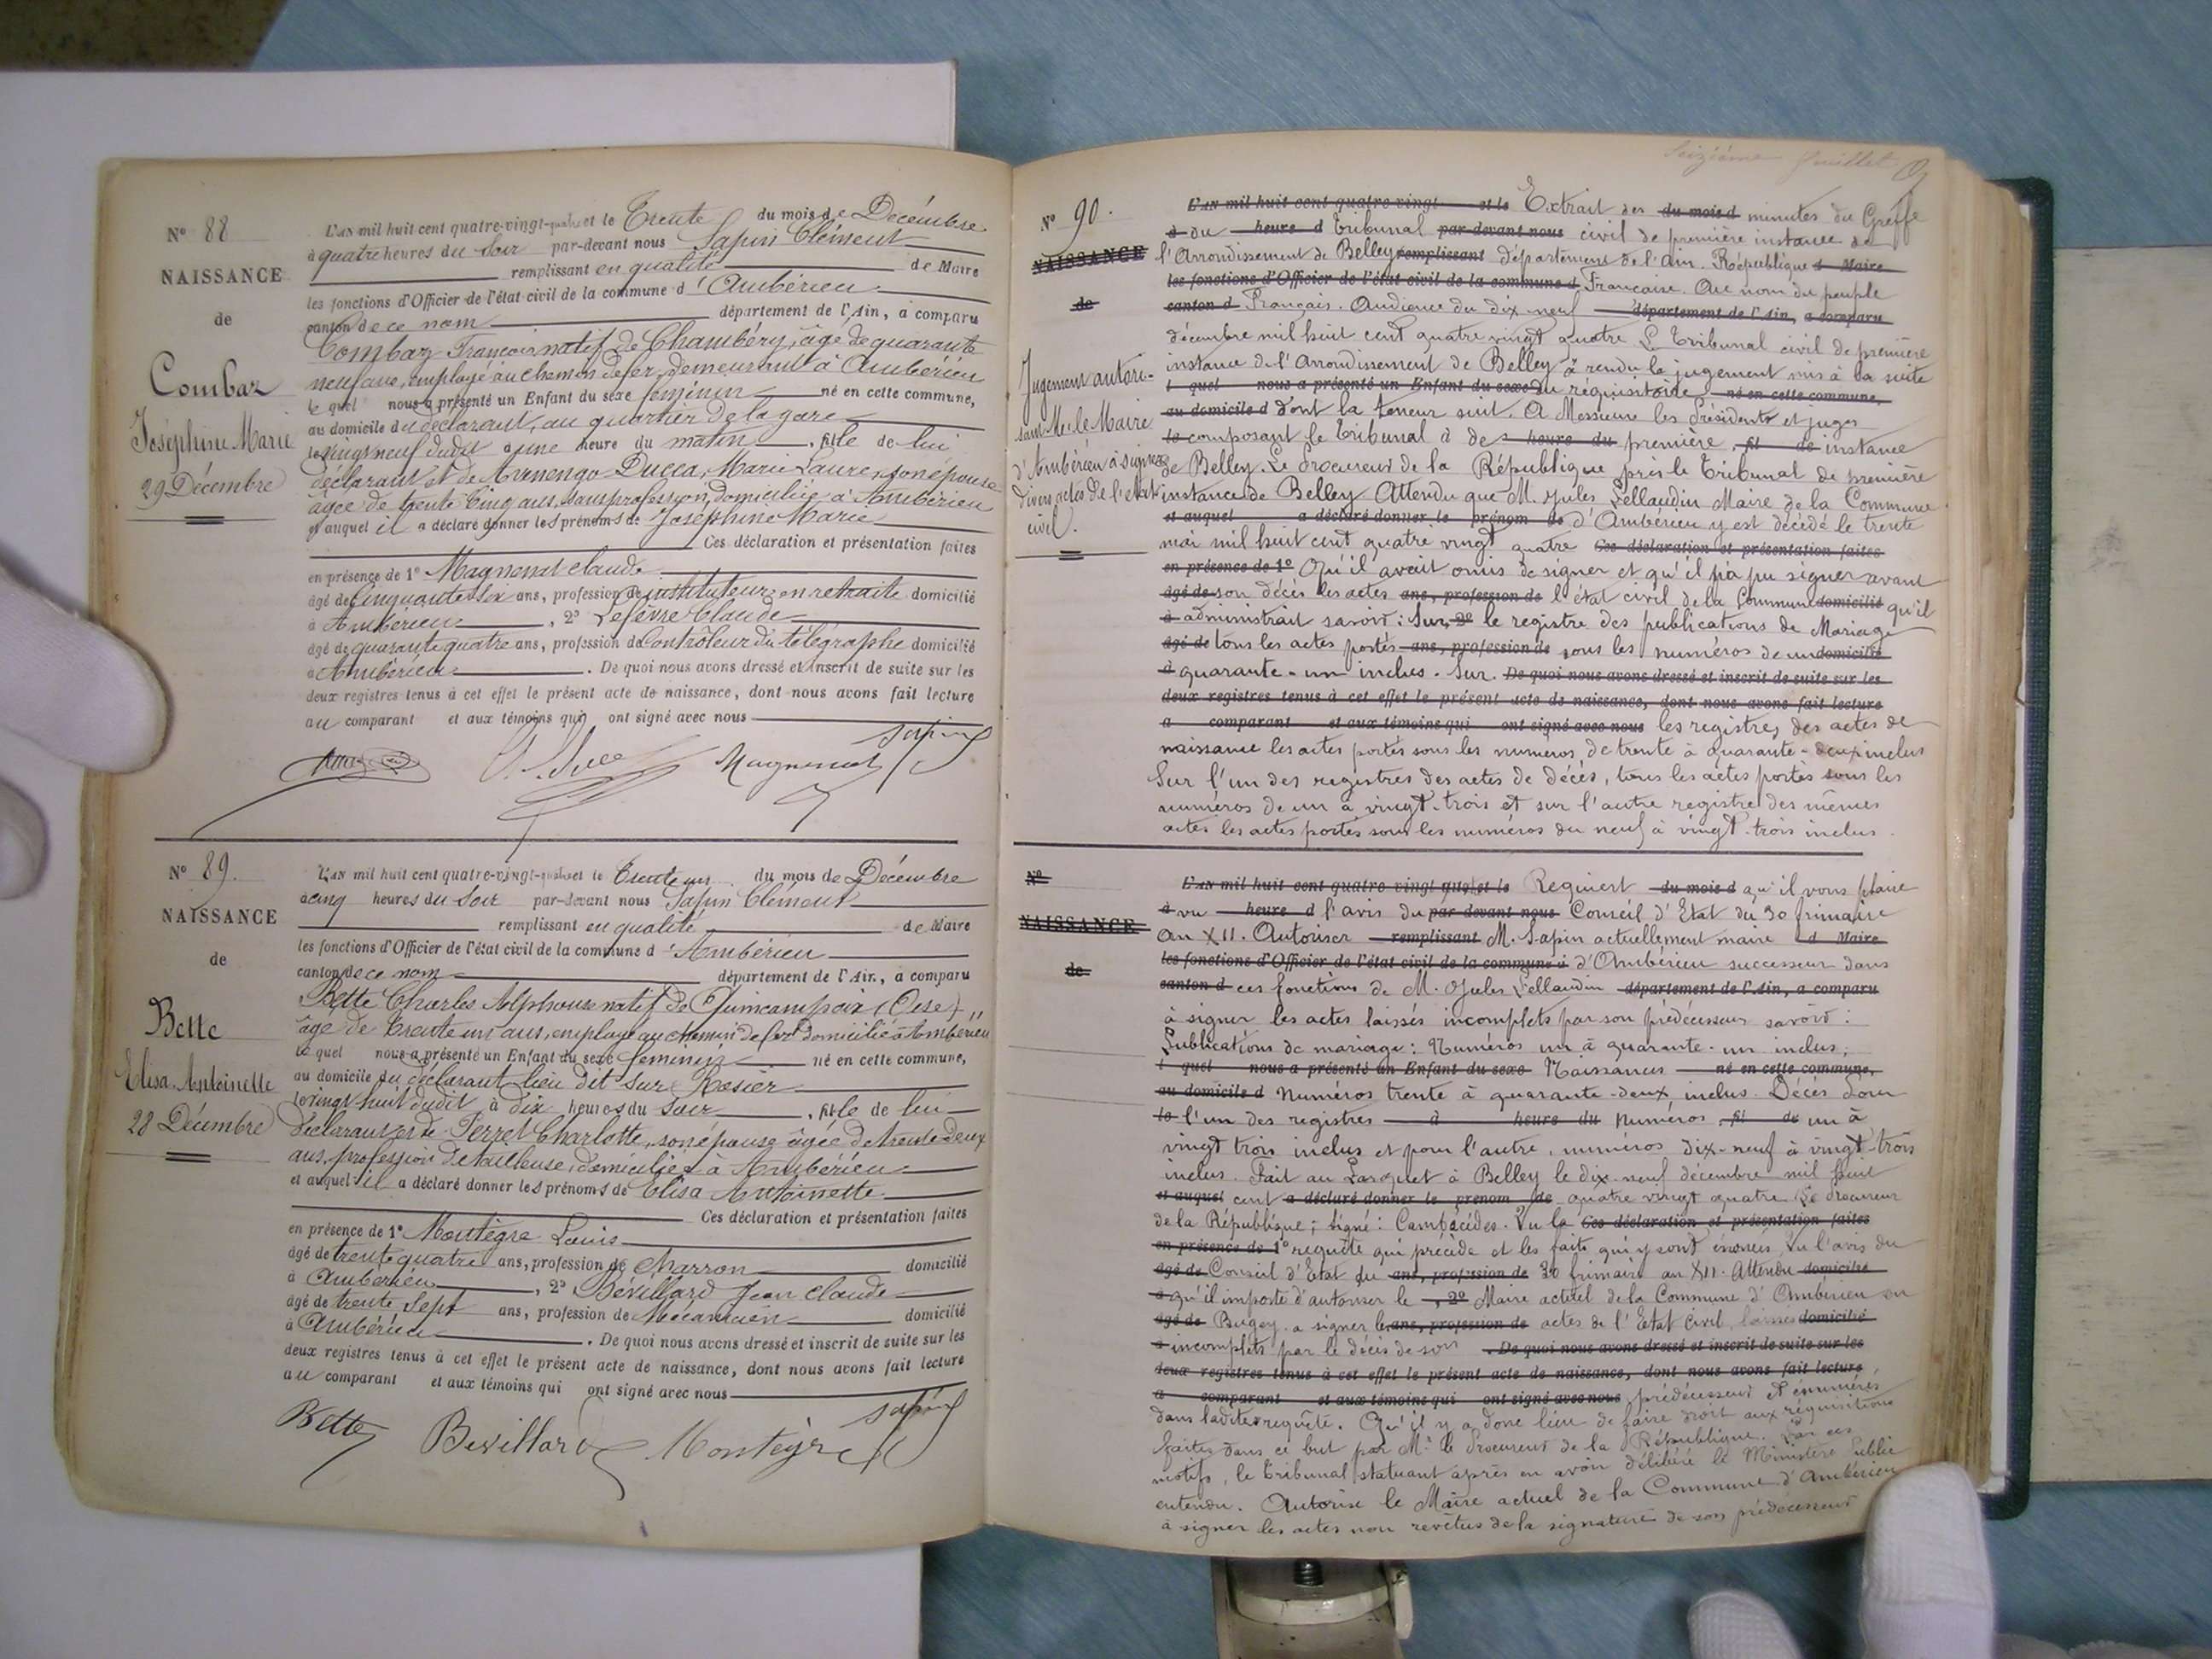 N° 88
NAISSANCE
de
Combaz
Joséphine Marie
29 Décembre
L'AN mil huit cent quatre-vingt-quatre et le Trente du mois de Décembre
à quatre heures du Soir par-devant nous Sapin Clément
remplissant en qualité de Maire
les fonctions d'Officier de l'état civil de la commune d'Ambérieu
canton de ce nom département de l'Ain, a comparu
Combaz François natif de Chambéry, âgé de quarante
neuf ans, employé au chemin de fer, demeurant à Ambérieu
lequel nous a présenté un Enfant du sexe féminin né en cette commune,
au domicile du déclarant, au quartier de la gare
le vingt neuf dudit à une heure du matin, fille de lui
déclarant et de Armengo Ducca, Marie Laure, son épouse
âgée de trente cinq ans, sans profession, domiciliée à Ambérieu
et auquel il a déclaré donner les prénoms de Joséphine Marie
Ces déclaration et présentation faites
en présence de 1° Magnenat Claude
âgé de Cinquante six ans, profession de instituteur en retraite domicilié
à Ambérieu, 2° Lefèvre Claude
âgé de quarante quatre ans, profession de Contrôleur du télégraphe domicilié
à Ambérieu. De quoi nous avons dressé et inscrit de suite sur les
deux registres tenus à cet effet le présent acte de naissance, dont nous avons fait lecture
au comparant et aux témoins qui ont signé avec nous
Magnenat Sapin
N° 89.
NAISSANCE
de
Bette
Elisa Antoinette
28 Décembre
L'AN mil huit cent quatre-vingt-quatre et le Trente un du mois de Décembre
à cinq heures du Soir par-devant nous Sapin Clément
remplissant en qualité de Maire
les fonctions d'Officier de l'état civil de la commune d'Ambérieu
canton de ce nom département de l'Ain, a comparu
Bette Charles Alphonse natif de Quincampoix (Oise)
âgé de trente un ans, employé au chemin de fer domicilié à Ambérieu
lequel nous a présenté un Enfant du sexe féminin né en cette commune,
au domicile du déclarant lieu dit sur Rosier
le vingt huit dudit à dix heures du soir, fille de lui
déclarant et de Perret Charlotte, son épouse âgée de trente deux
ans, profession de tailleuse, domiciliée à Ambérieu
et auquel il a déclaré donner les prénoms de Elisa Antoinette
Ces déclaration et présentation faites
en présence de 1° Montègre Louis
âgé de trente quatre ans, profession de Charron domicilié
à Ambérieu, 2° Bévillard Jean Claude
âgé de trente sept ans, profession de Mécanicien domicilié
à Ambérieu. De quoi nous avons dressé et inscrit de suite sur les
deux registres tenus à cet effet le présent acte de naissance, dont nous avons fait lecture
au comparant et aux témoins qui ont signé avec nous
Bette Bevillard Montègre Sapin
Seizième feuillet
N° 90.
NAISSANCE
de
Jugement autori-
sant Mr le Maire
d'Ambérieu à signer
divers actes de l'état
civil.
L'AN mil huit cent quatre-vingt et le Extrait des du mois d minutes du Greffe
à du heure d tribunal par-devant nous civil de première instance de
l'Arrondissement de Belley remplissant département de l'Ain. République d Maire
les fonctions d'Officier de l'état civil de la commune d Française. Au nom du peuple
canton d Français. Audience du dix-neuf département de l'Ain, a comparu
décembre mil huit cent quatre vingt quatre Le Tribunal civil de première
instance de l'Arrondissement de Belley à rendu le jugement mis à la suite
l quel nous a présenté un Enfant du sexe du réquisitoire né en cette commune,
au domicile d dont la teneur suit. A Messieurs les Présidents et juges
le composant le tribunal à de heure du première, fil de instance
de Belley. Le Procureur de la République près le Tribunal de première
instance de Belley Attendu que M. Jules Pellaudin Maire de la Commune
et auquel a déclaré donner le prénom de d'Ambérieu y est décédé le trente
mai mil huit cent quatre vingt quatre Ces déclaration et présentation faites
en présence de 1° Qu'il avait omis de signer et qu'il n'a pu signer avant
âgé de son décès les actes ans, profession de l'état civil de la Commune domicilié qu'il
à administrait savoir: Sur, 2° le registre des publications de Mariage
âgé de tous les actes portés ans, profession de sous les numéros de un domicilié
à quarante-un inclus. Sur. De quoi nous avons dressé et inscrit de suite sur les
deux registres tenus à cet effet le présent acte de naissance, dont nous avons fait lecture
a comparant et aux témoins qui ont signé avec nous les registres des actes de
naissance les actes portés sous les numéros de trente à quarante-deux inclus
Sur l'un des registres des actes de décès, tous les actes portés sous les
numéros de un à vingt-trois et sur l'autre registre des mêmes
actes les actes portés sous les numéros du neuf à vingt-trois inclus.
N°
NAISSANCE
de
L'AN mil huit cent quatre-vingt quatre et le Requiert du mois d qu'il vous plaise
à vu heure d l'avis du par-devant nous Conseil d'Etat du 30 frimaire
an XII. Autoriser remplissant M. Sapin actuellement maire d Maire
les fonctions d'Officier de l'état civil de la commune d d'Ambérieu successeur dans
canton d ces fonctions de M. Jules Pellaudin département de l'Ain, a comparu
à signer les actes laissés incomplets par son prédécesseur savoir:
Publications de mariage: Numéros un à quarante-un inclus;
l quel nous a présenté un Enfant du sexe Naissances né en cette commune,
au domicile d Numéros trente à quarante-deux inclus. Décès sur
le l'un des registres à heure du Numéros, fil de un à
vingt trois inclus et pour l'autre, numéros dix-neuf à vingt-trois
inclus. Fait au Parquet à Belley le dix-neuf décembre mil huit
et auquel cent a déclaré donner le prénom de quatre vingt quatre Le Procureur
de la République; signé: Cambacédès. Vu la Ces déclaration et présentation faites
en présence de 1° requête qui précède et les faits qui y sont énoncés Vu l'avis du
âgé de Conseil d'Etat du ans, profession de 30 frimaire an XII. Attendu domicilié
à qu'il importe d'autoriser le, 2° Maire actuel de la Commune d'Ambérieu en
âgé de Bugey. a signer les ans, profession de actes de l'Etat Civil, laissés domicilié
à incomplets par le décès de son. De quoi nous avons dressé et inscrit de suite sur les
deux registres tenus à cet effet le présent acte de naissance, dont nous avons fait lecture
a comparant et aux témoins qui ont signé avec nous prédécesseur et énumérés
dans ladite requête. Qu'il y a donc lieu de faire droit aux réquisitions
faites dans ce but par Mr le Procureur de la République. Par ces
motifs, le tribunal statuant après en avoir délibéré le Ministère Public
entendu. Autorise le Maire actuel de la Commune d'Ambérieu
à signer les actes non revêtus de la signature de son prédécesseur